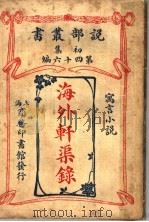 說部叢書
初集
第四十六編
寓言小說
海外軒渠錄
上海商務印書館發行